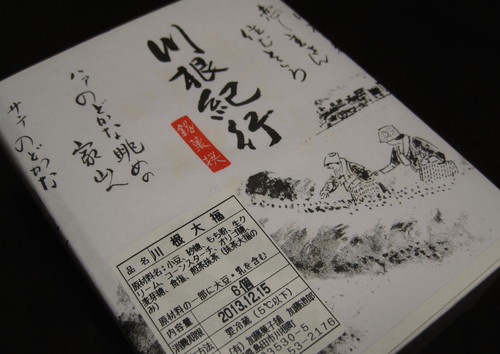 恋し主さん
住むところ
川根紀行
銘菓撰
ハアのどかな眺めの
家山へ
サテのどかな
品名 川根大福
原材料名：小豆、砂糖、もち粉、生ク
リーム、コーンスターチ、オリゴ糖、
麦芽糖、食塩、煎茶抹茶（抹茶大福の
み）
原材料の一部に大豆・乳を含む
内容量 8個
消費期限 2013.12.15
方法 要冷蔵（5℃以下）
（有）加藤菓子舗 加藤道郎
島田市川根町
3530-5
53-2176